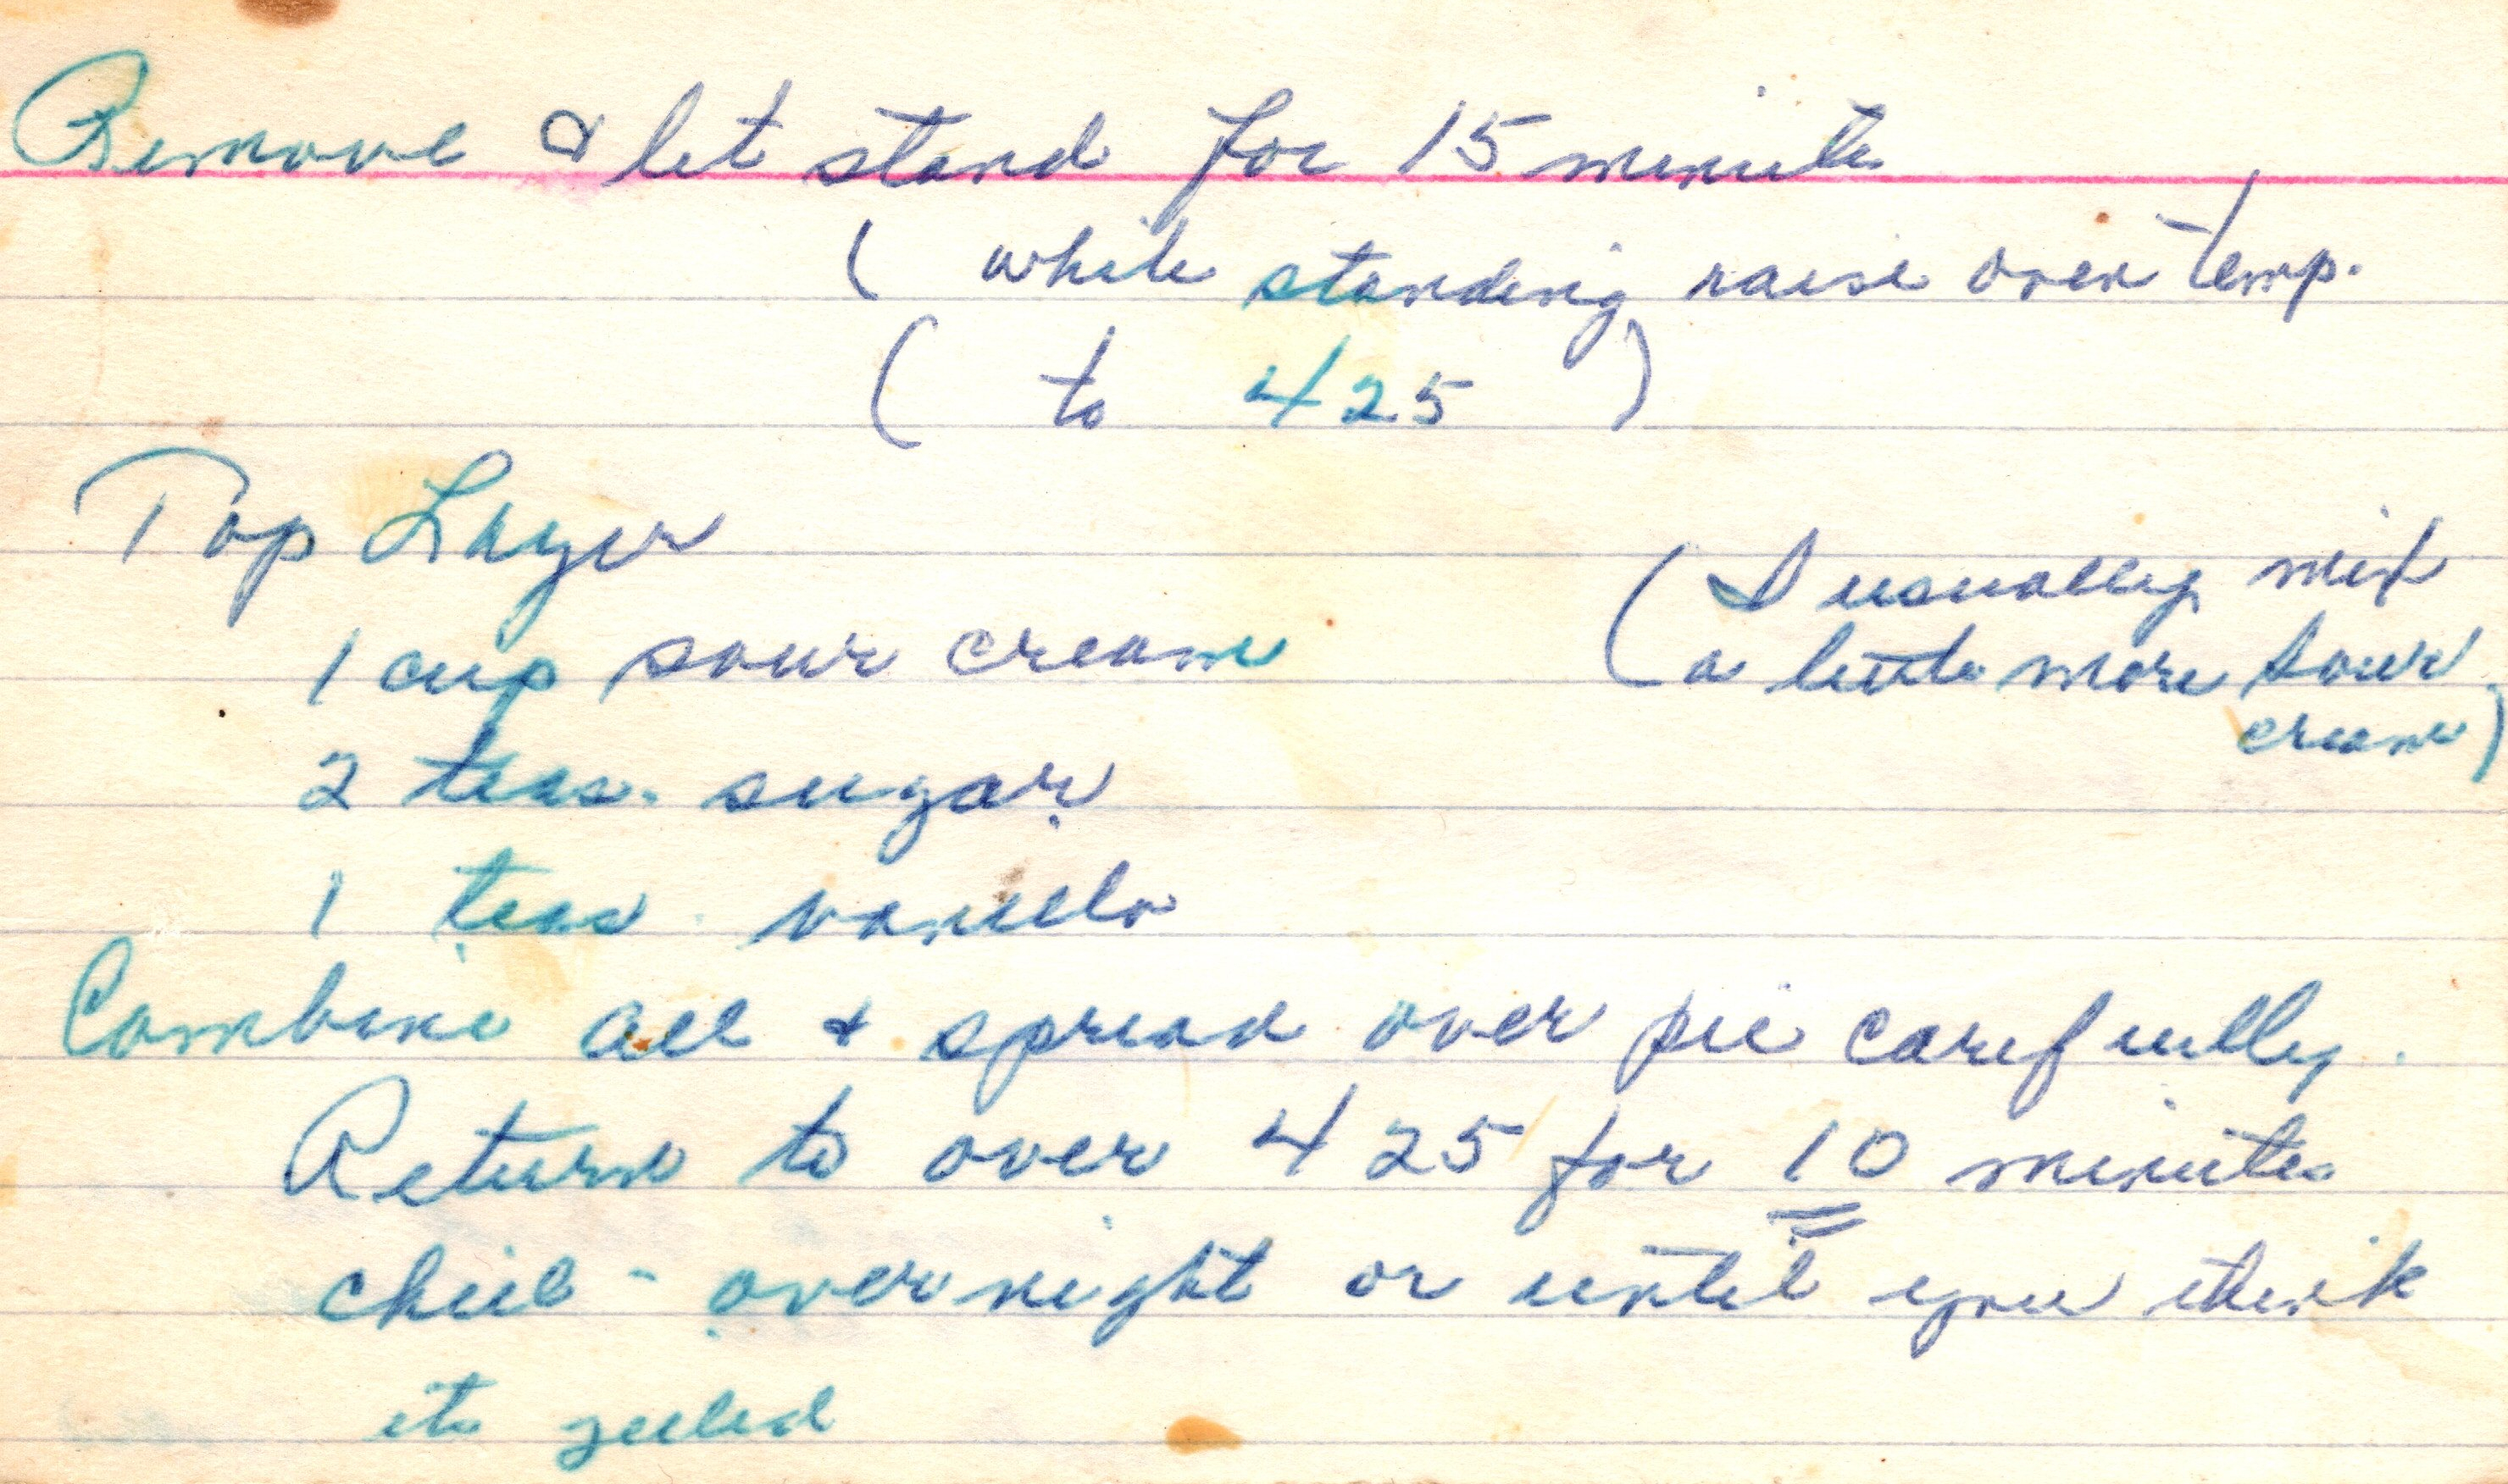 Remove & let stand for 15 minutes
( while standing raise oven temp.
( to 425 )
Top Layer
1 cup sour cream
(I usually mix
a little more sour
cream)
2 teas. sugar
1 teas. vanilla
Combine all & spread over pie carefully.
Return to oven 425 for 10 minutes
chill - overnight or until you think
its jelled